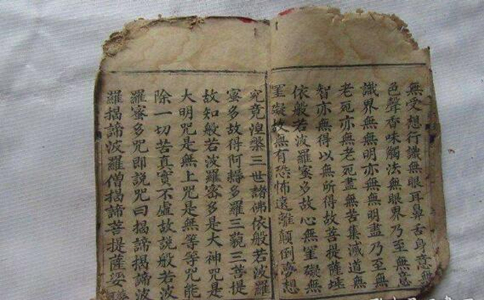 無受想行識無眼耳鼻舌身意無
色聲香味觸法無眼界乃至無意
識界無無明亦無無明盡乃至無
老死亦無老死盡無苦集滅道無
智亦無得以無所得故菩提薩埵
依般若波羅蜜多故心無罣礙無
罣礙故無有恐怖遠離顛倒夢想
究竟涅槃三世諸佛依般若波羅
蜜多故得阿耨多羅三藐三菩提
故知般若波羅蜜多是大神咒是
大明咒是無上咒是無等等咒能
除一切苦真實不虛故說般若波
羅蜜多咒即說咒曰揭諦揭諦波
羅揭諦波羅僧揭諦菩提薩婆